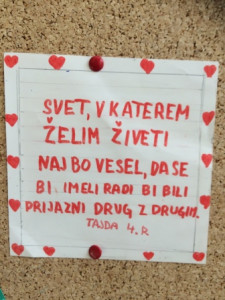 SVET, V KATEREM
ŽELIM ŽIVETI
NAJ BO VESEL, DA SE
BI IMELI RADI BI BILI
PRIJAZNI DRUG Z DRUGIM.
TAJDA 4. R